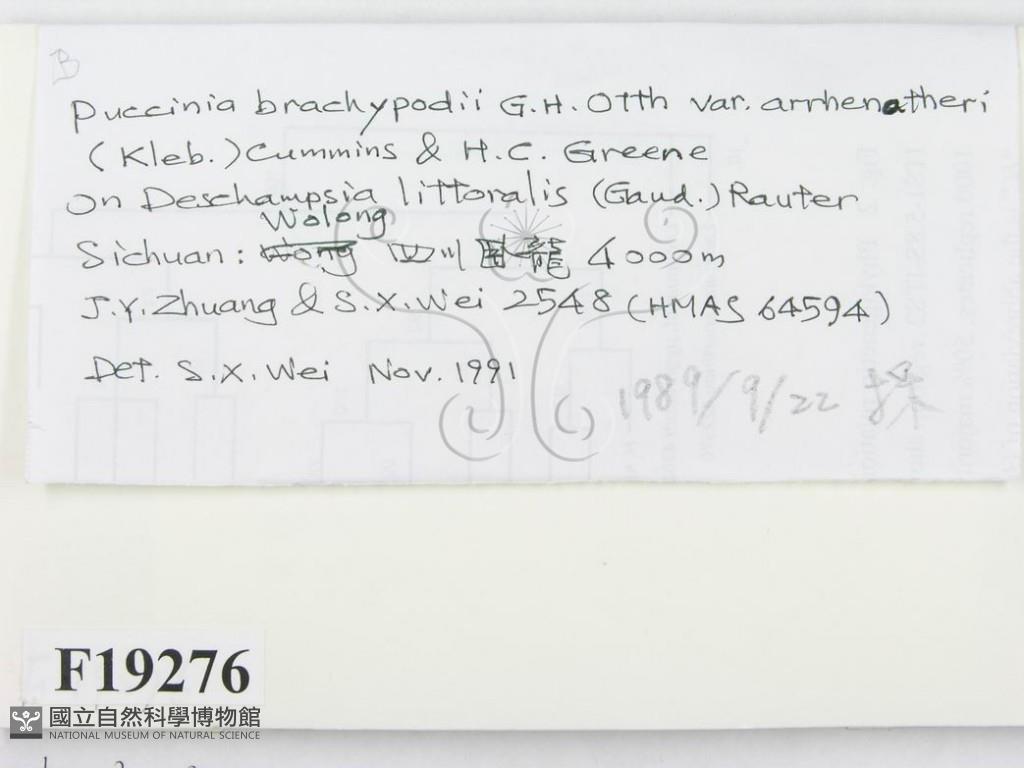 B
Puccinia brachypodii G.H. Otth var. arrhenatheri
(Kleb.) Cummins & H.C. Greene
on Deschampsia littoralis (Gaud.) Rauter
Wolong
Sichuan: Wong 四川 臥龍 4000m
J.Y. Zhuang & S.X. Wei 2548 (HMAS 64594)
Det. S.X. Wei Nov. 1991
1989/9/22 採
F19276
國立自然科學博物館
NATIONAL MUSEUM OF NATURAL SCIENCE